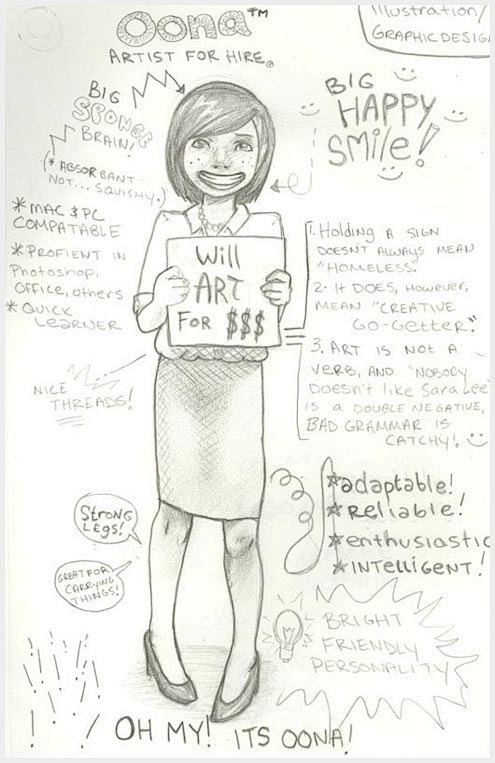 Oona™
ARTIST FOR HIRE.
Illustration/
GRAPHIC DESIG
BIG
SPONGE
BRAIN!
(* ABSORBANT
NOT... SQUISHY.)
BIG
HAPPY
SMILE!
* MAC & PC
COMPATABLE
* PROFIENT IN
Photoshop,
OFFICE, others
* QUICK
LEARNER
Will
ART
FOR $$$
1. Holding A SIGN
DOESN'T ALWAYS MEAN
"HOMELESS."
2. IT DOES, HOWEVER,
MEAN "CREATIVE
GO-GETTER."
3. ART IS NOT A
VERB, AND "NOBODY
Doesn't like Sara Lee"
IS A DOUBLE NEGATIVE,
BAD GRAMMAR IS
CATCHY!
NICE
THREADS!
*adaptable!
*Reliable!
*enthusiastic
*INTELLIGENT!
STRONG
LEGS!
GREAT FOR
CARRYING
THINGS!
BRIGHT
FRIENDLY
PERSONALITY
OH MY! ITS OONA!